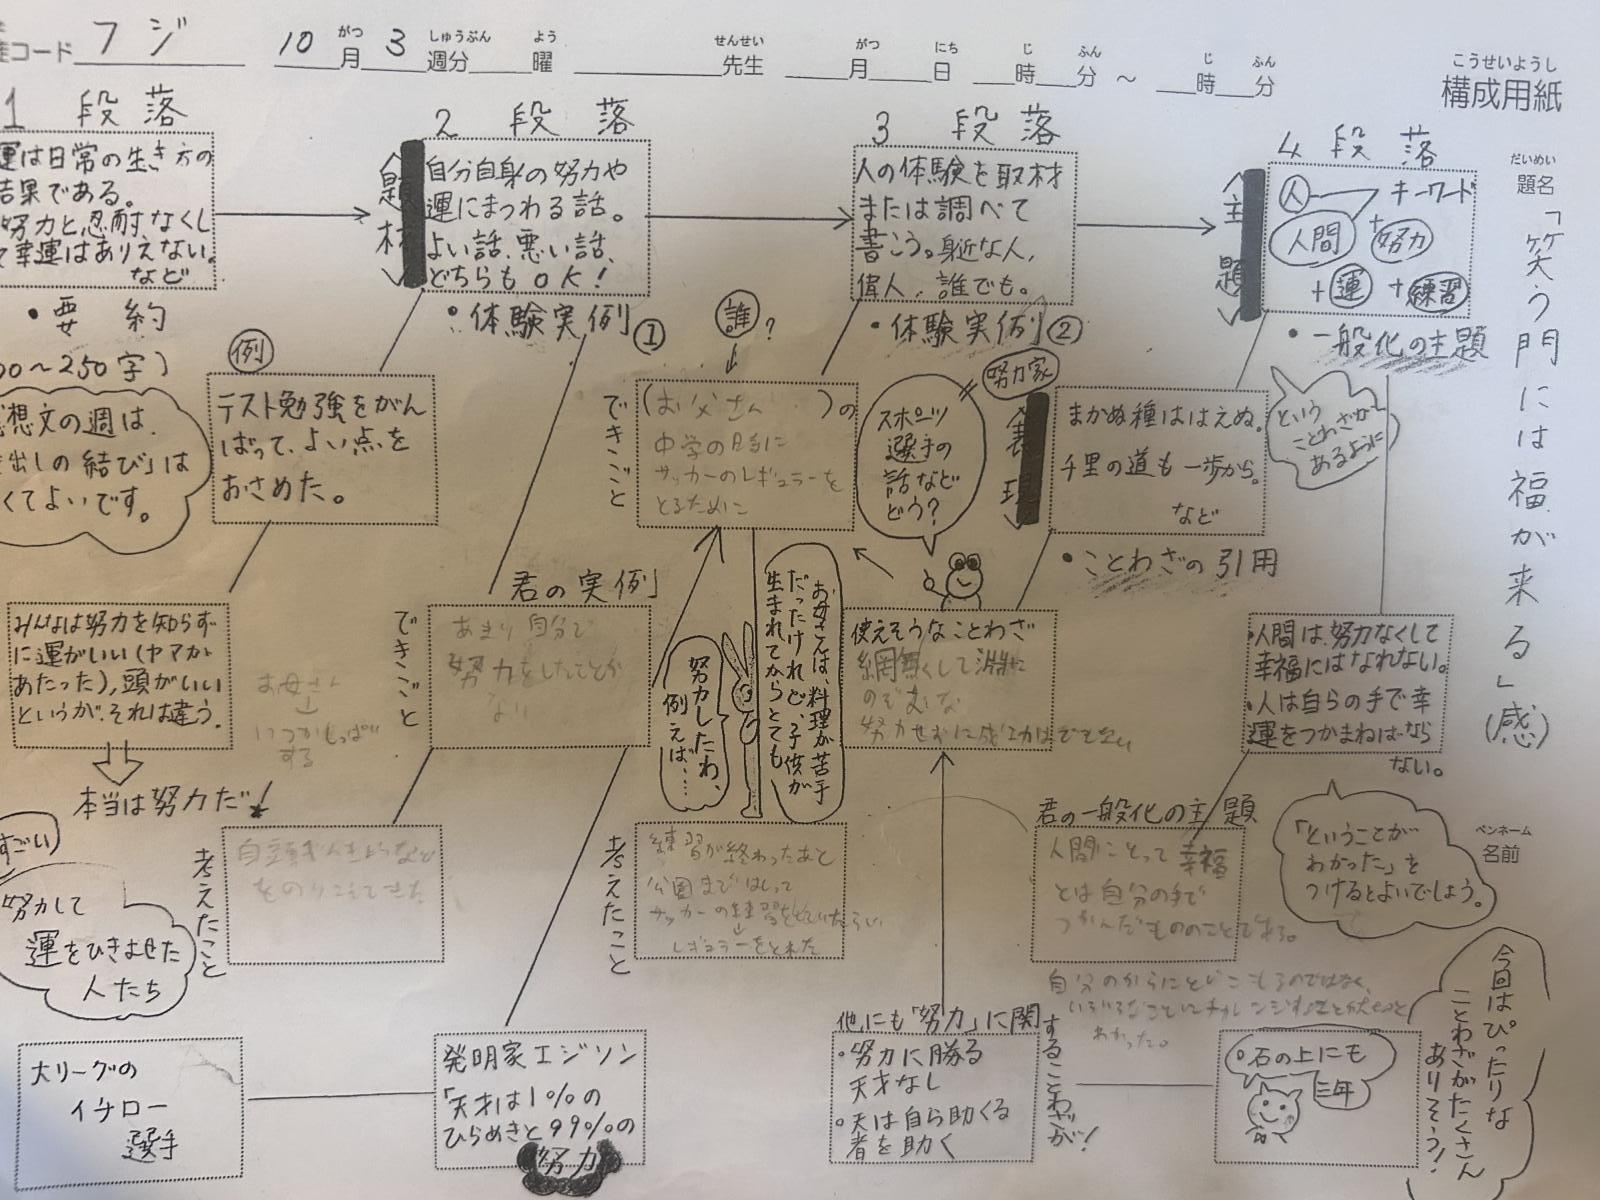 コード フジ
10月3週分 曜
先生 月 日 時 分 ～ 時 分
がつ しゅうぶん よう せんせい がつ にち じ ふん じ ふん
こうせいようし
構成用紙
だいめい
題名
「笑う門には福が来る」(感)
ペンネーム
名前
1段落
運は日常の生き方の
結果である。
努力と忍耐なくし
て幸運はありえない。
など
・要約
00～250字)
想文の週は、
出しの結び」は
くてよいです。
みんなは努力を知らず
に運がいい(ヤマが
あたった)、頭がいい
というが、それは違う。
本当は努力だ!
すごい
努力して
運をひきよせた
人たち
大リーグの
イチロー
選手
2段落
題材
自分自身の努力や
運にまつわる話。
よい話、悪い話、
どちらもOK!
・体験実例①
例
テスト勉強をがん
ばって、よい点を
おさめた。
お母さん
君の実例
できごと
あまり自分で
努力をしたことが
ない
考えたこと
発明家エジソン
「天才は1%の
ひらめきと99%の
努力
3段落
人の体験を取材
または調べて
書こう。身近な人、
偉人、誰でも。
・体験実例②
誰?
できごと
(お父さん)の
中学の時に
サッカーのレギュラーを
とるために
スポーツ
選手の
話など
どう?
努力したわ、
例えば…
お母さんは、料理が苦手
だったけれど、子供が
生まれてからとても
努力家
考えたこと
練習が終わったあと
公園まではしって
レギュラーをとれた
4段落
主題
人 キーワード
人間+努力
+運+練習
・一般化の主題
表現
まかぬ種ははえぬ。
千里の道も一歩から。
など
という
ことわざが
あるように
・ことわざの引用
使えそうなことわざ
網無くして淵に
のぞむな
努力せずに成功はできない
・人間は、努力なくして
幸福にはなれない。
・人は自らの手で幸
運をつかまねばなら
ない。
君の一般化の主題
人間にとって幸福
とは自分の手で
つかんだもののことである。
わかった。
「ということが
わかった」を
つけるとよいでしょう。
他にも「努力」に関
することわざが!
・努力に勝る
天才なし
・天は自ら助くる
者を助く
石の上にも
三年
今回はぴったりな
ことわざがたくさん
ありそう!